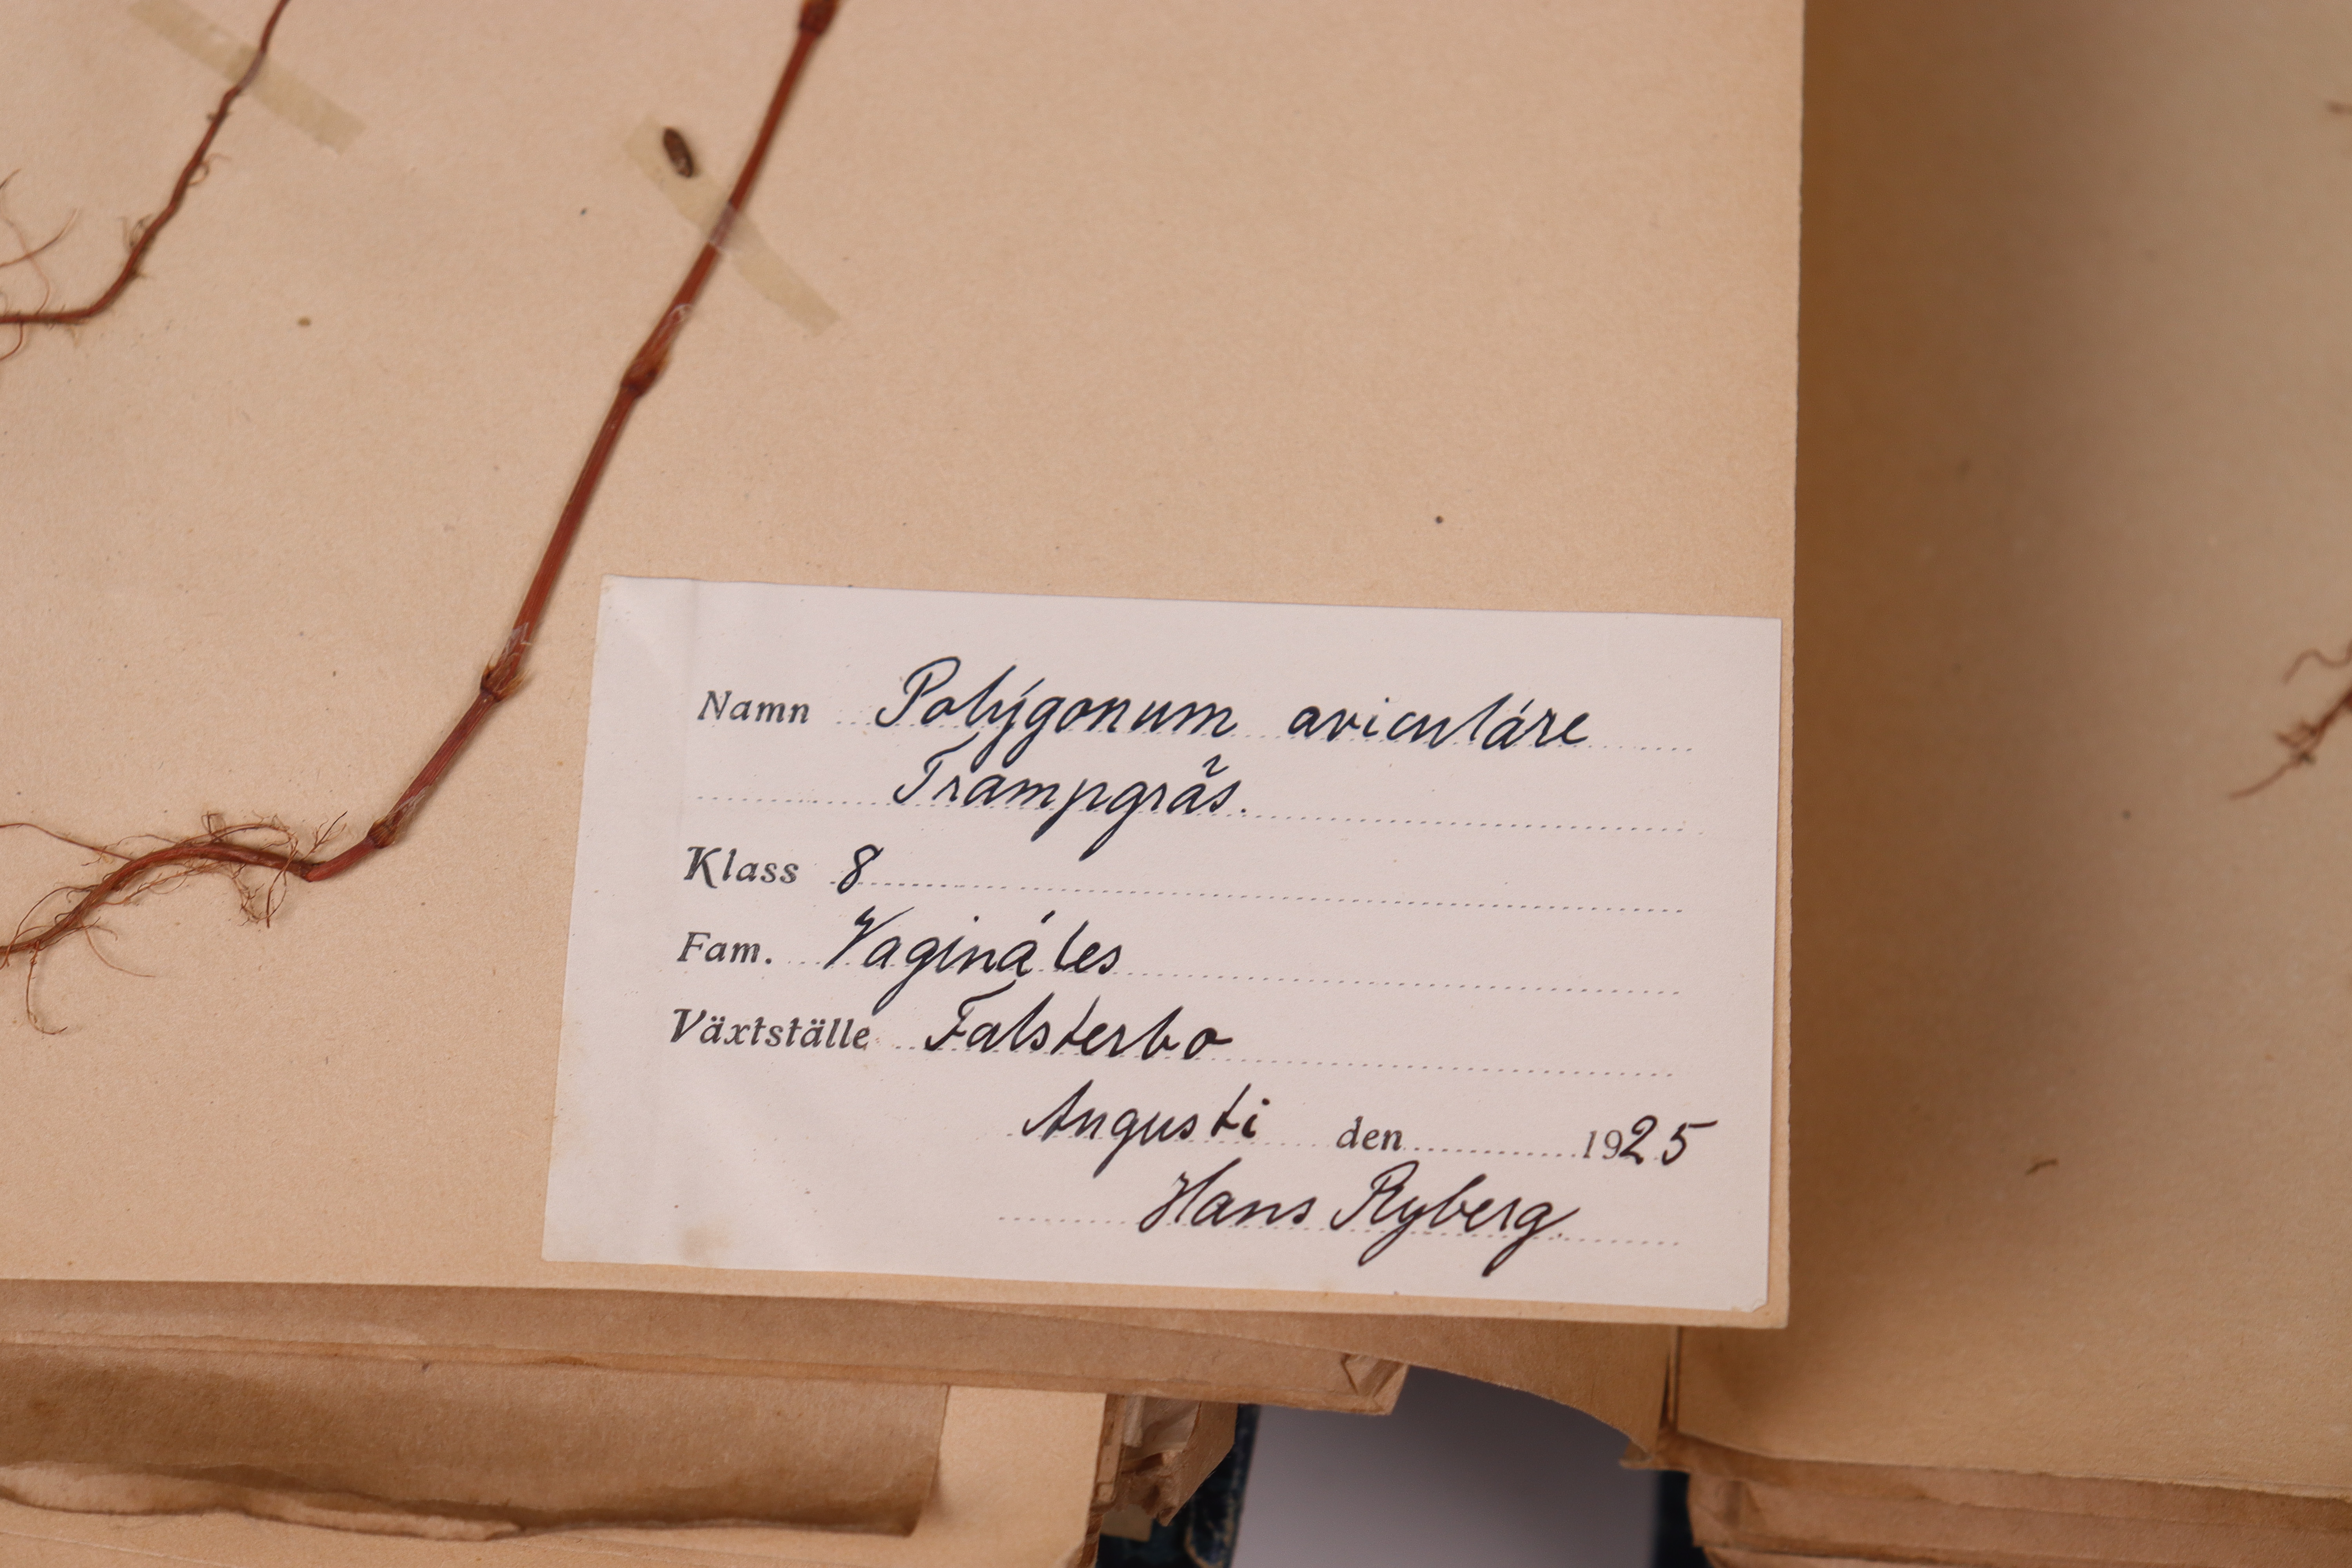 Namn Polýgonum aviculáre
Trampgräs.
Klass 8
Fam. Vagináles
Växtställe Falsterbo
Augusti den 1925
Hans Ryberg.